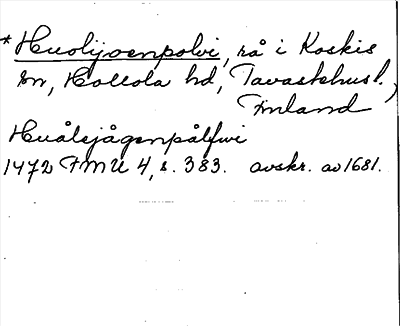 *Huolijoenpolvi, rå i Koskis
sn, Hollola hd, Tavastehusl.,
Finland
Huålsjågenpålfwi
1472 FMU 4, s. 383. avskr. av 1681.